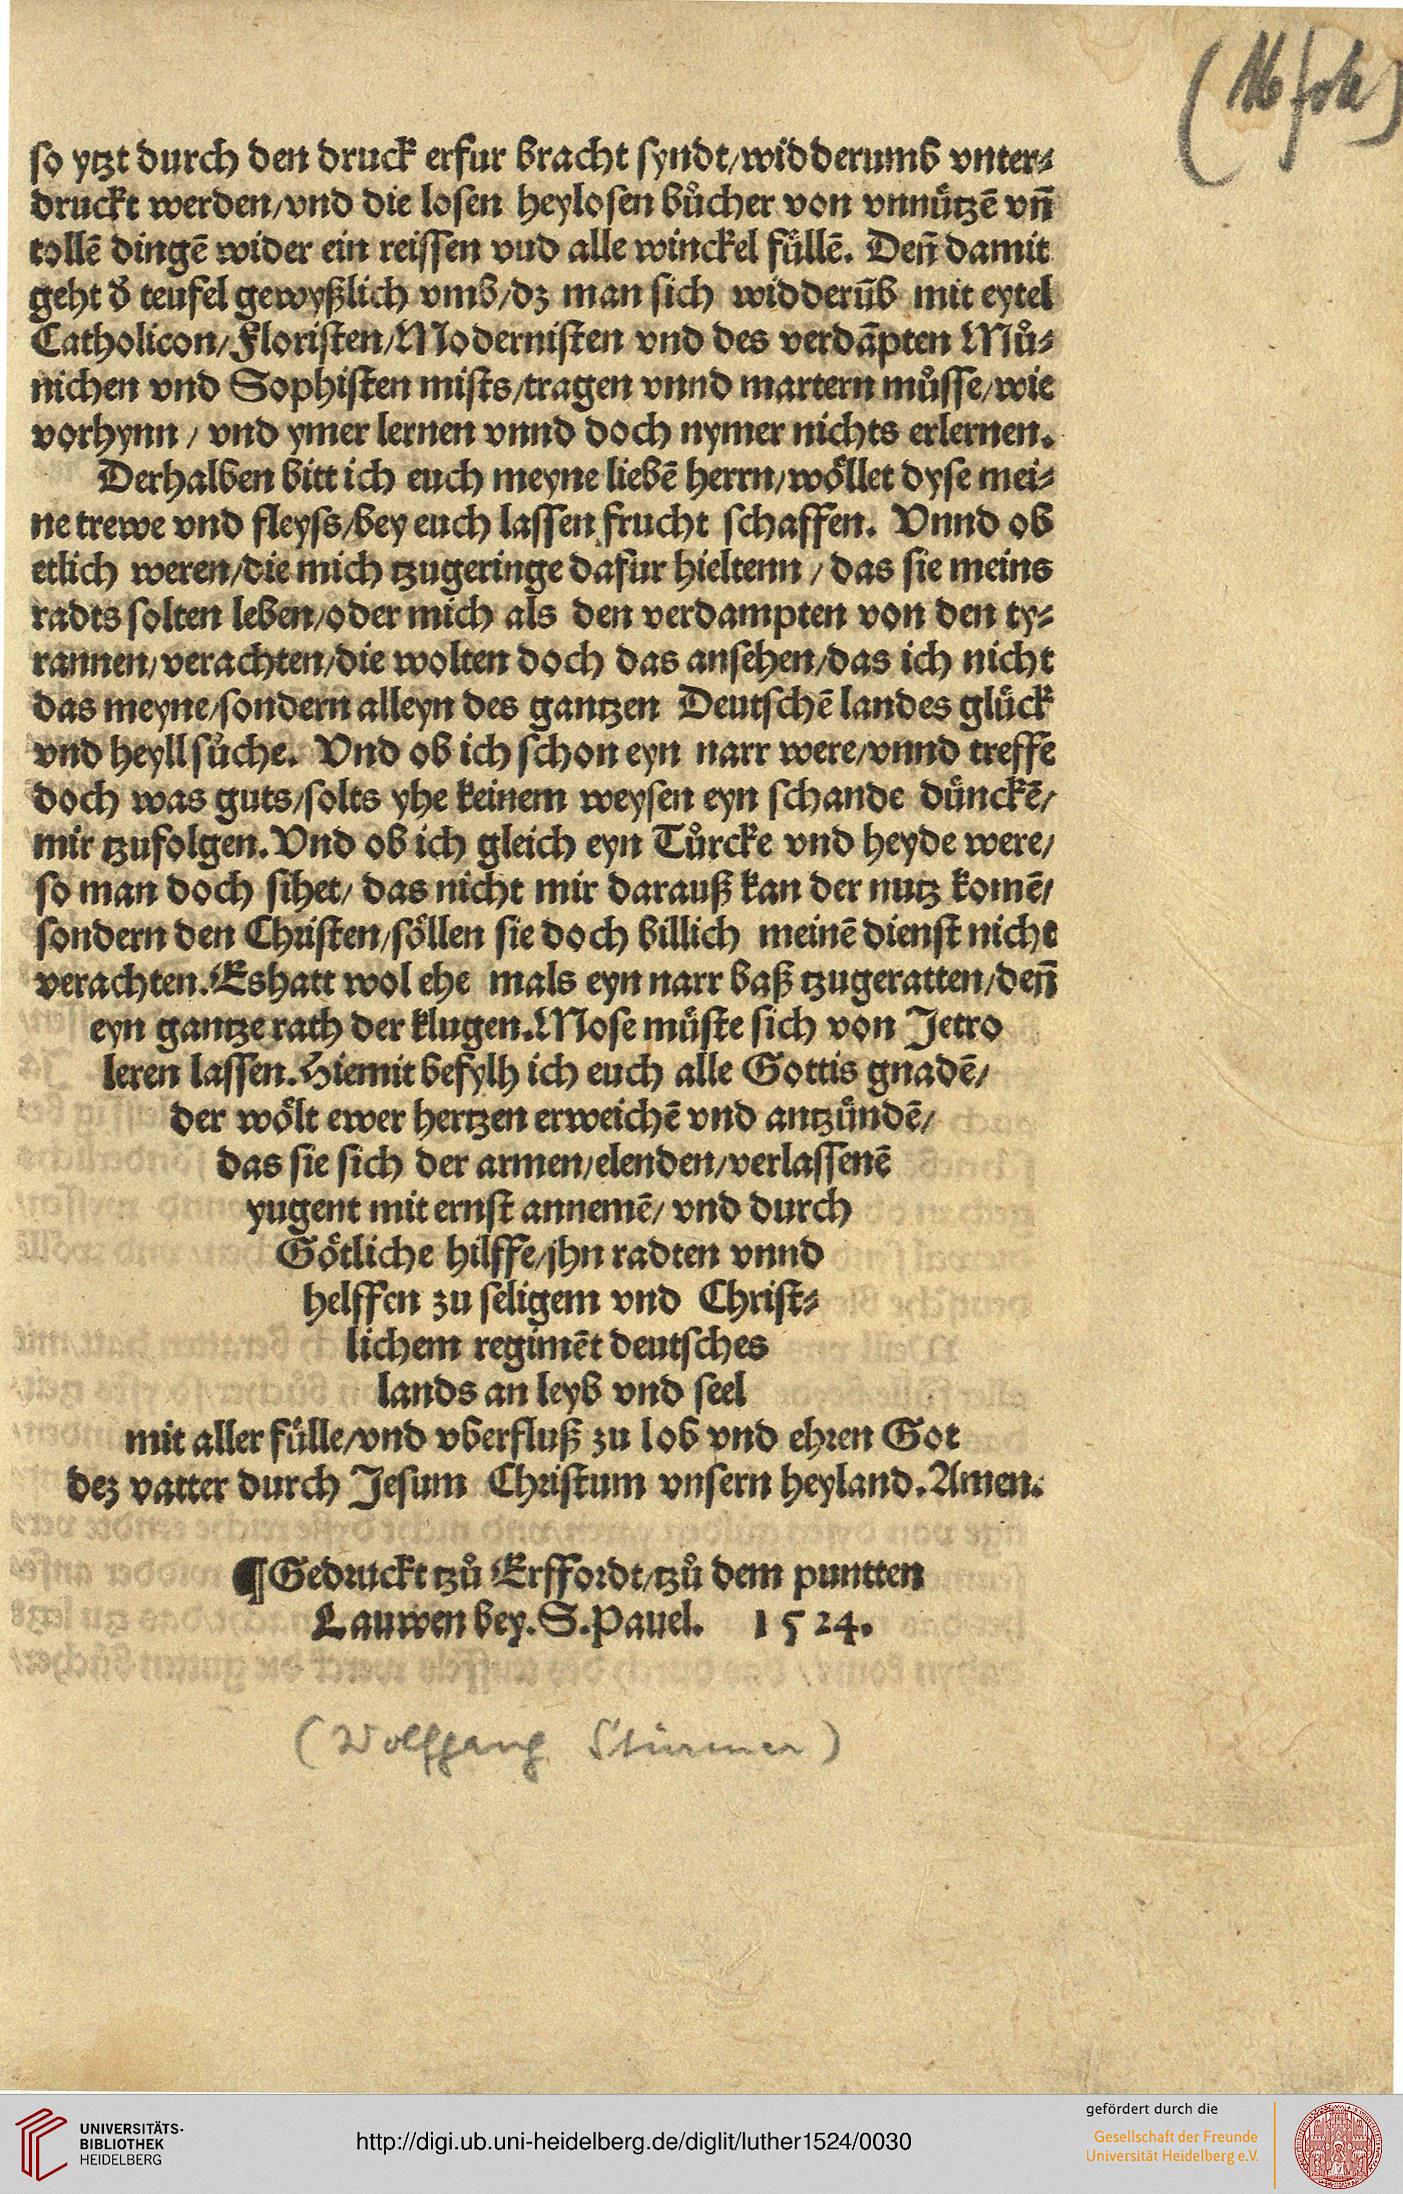 so ytzt durch den druck erfur bracht syndt/widderumb vnter⸗
druckt werden/vnd die losen heylosen bůcher von vnnützẽ vñ
tollẽ dingẽ wider ein reissen vud alle winckel füllẽ. Deñ damit
geht d̕ teufel gewyßlich vmb/dz man sich widderũb mit eytel
Catholicon/Floristen/Modernisten vnd des verdãpten Mů⸗
nichen vnd Sophisten mists/tragen vnnd martern můsse/wie
vorhynn / vnd ymer lernen vnnd doch nymer nichts erlernen.
Derhalben bitt ich euch meyne liebẽ herrn/wöllet dyse mei⸗
ne trewe vnd fleyss/bey euch lassen frucht schaffen. Vnnd ob
etlich weren/die mich tzugeringe dafur hieltenn / das sie meins
radts solten leben/oder mich als den verdampten von den ty⸗
rannen/verachten/die wolten doch das ansehen/das ich nicht
das meyne/sondern alleyn des gantzen Deutschẽ landes glück
vnd heyll sůche. Vnd ob ich schon eyn narr were/vnnd treffe
doch was guts/solts yhe keinem weysen eyn schande dünckẽ/
mir tzufolgen. Vnd ob ich gleich eyn Tůrcke vnd heyde were/
so man doch sihet/ das nicht mir darauß kan der nutz komẽ/
sondern den Christen/söllen sie doch billich meinẽ dienst nicht
verachten. Es hatt wol ehe mals eyn narr baß tzugeratten/deñ
eyn gantze rath der klugen. Mose müste sich von Jetro
leren lassen. Hiemit befylh ich euch alle Gottis gnadẽ/
der wölt ewer hertzen erweichẽ vnd antzündẽ/
das sie sich der armen/elenden/verlassenẽ
yugent mit ernst annemẽ/ vnd durch
Götliche hilffe/jhn radten vnnd
helffen zu seligem vnd Christ⸗
lichem regimẽt deutsches
lands an leyb vnd seel
mit aller fülle/vnd vberfluß zu lob vnd ehren Got
dez vatter durch Jesum Christum vnsern heyland. Amen.
¶ Gedruckt tzů Erffordt/tzů dem puntten
Lauwen bey. S. Pauel. 1524.
(Wolfgang Stürmer)
UNIVERSITÄTS-
BIBLIOTHEK
HEIDELBERG
http://digi.ub.uni-heidelberg.de/diglit/luther1524/0030
gefördert durch die
Gesellschaft der Freunde
Universität Heidelberg e.V.